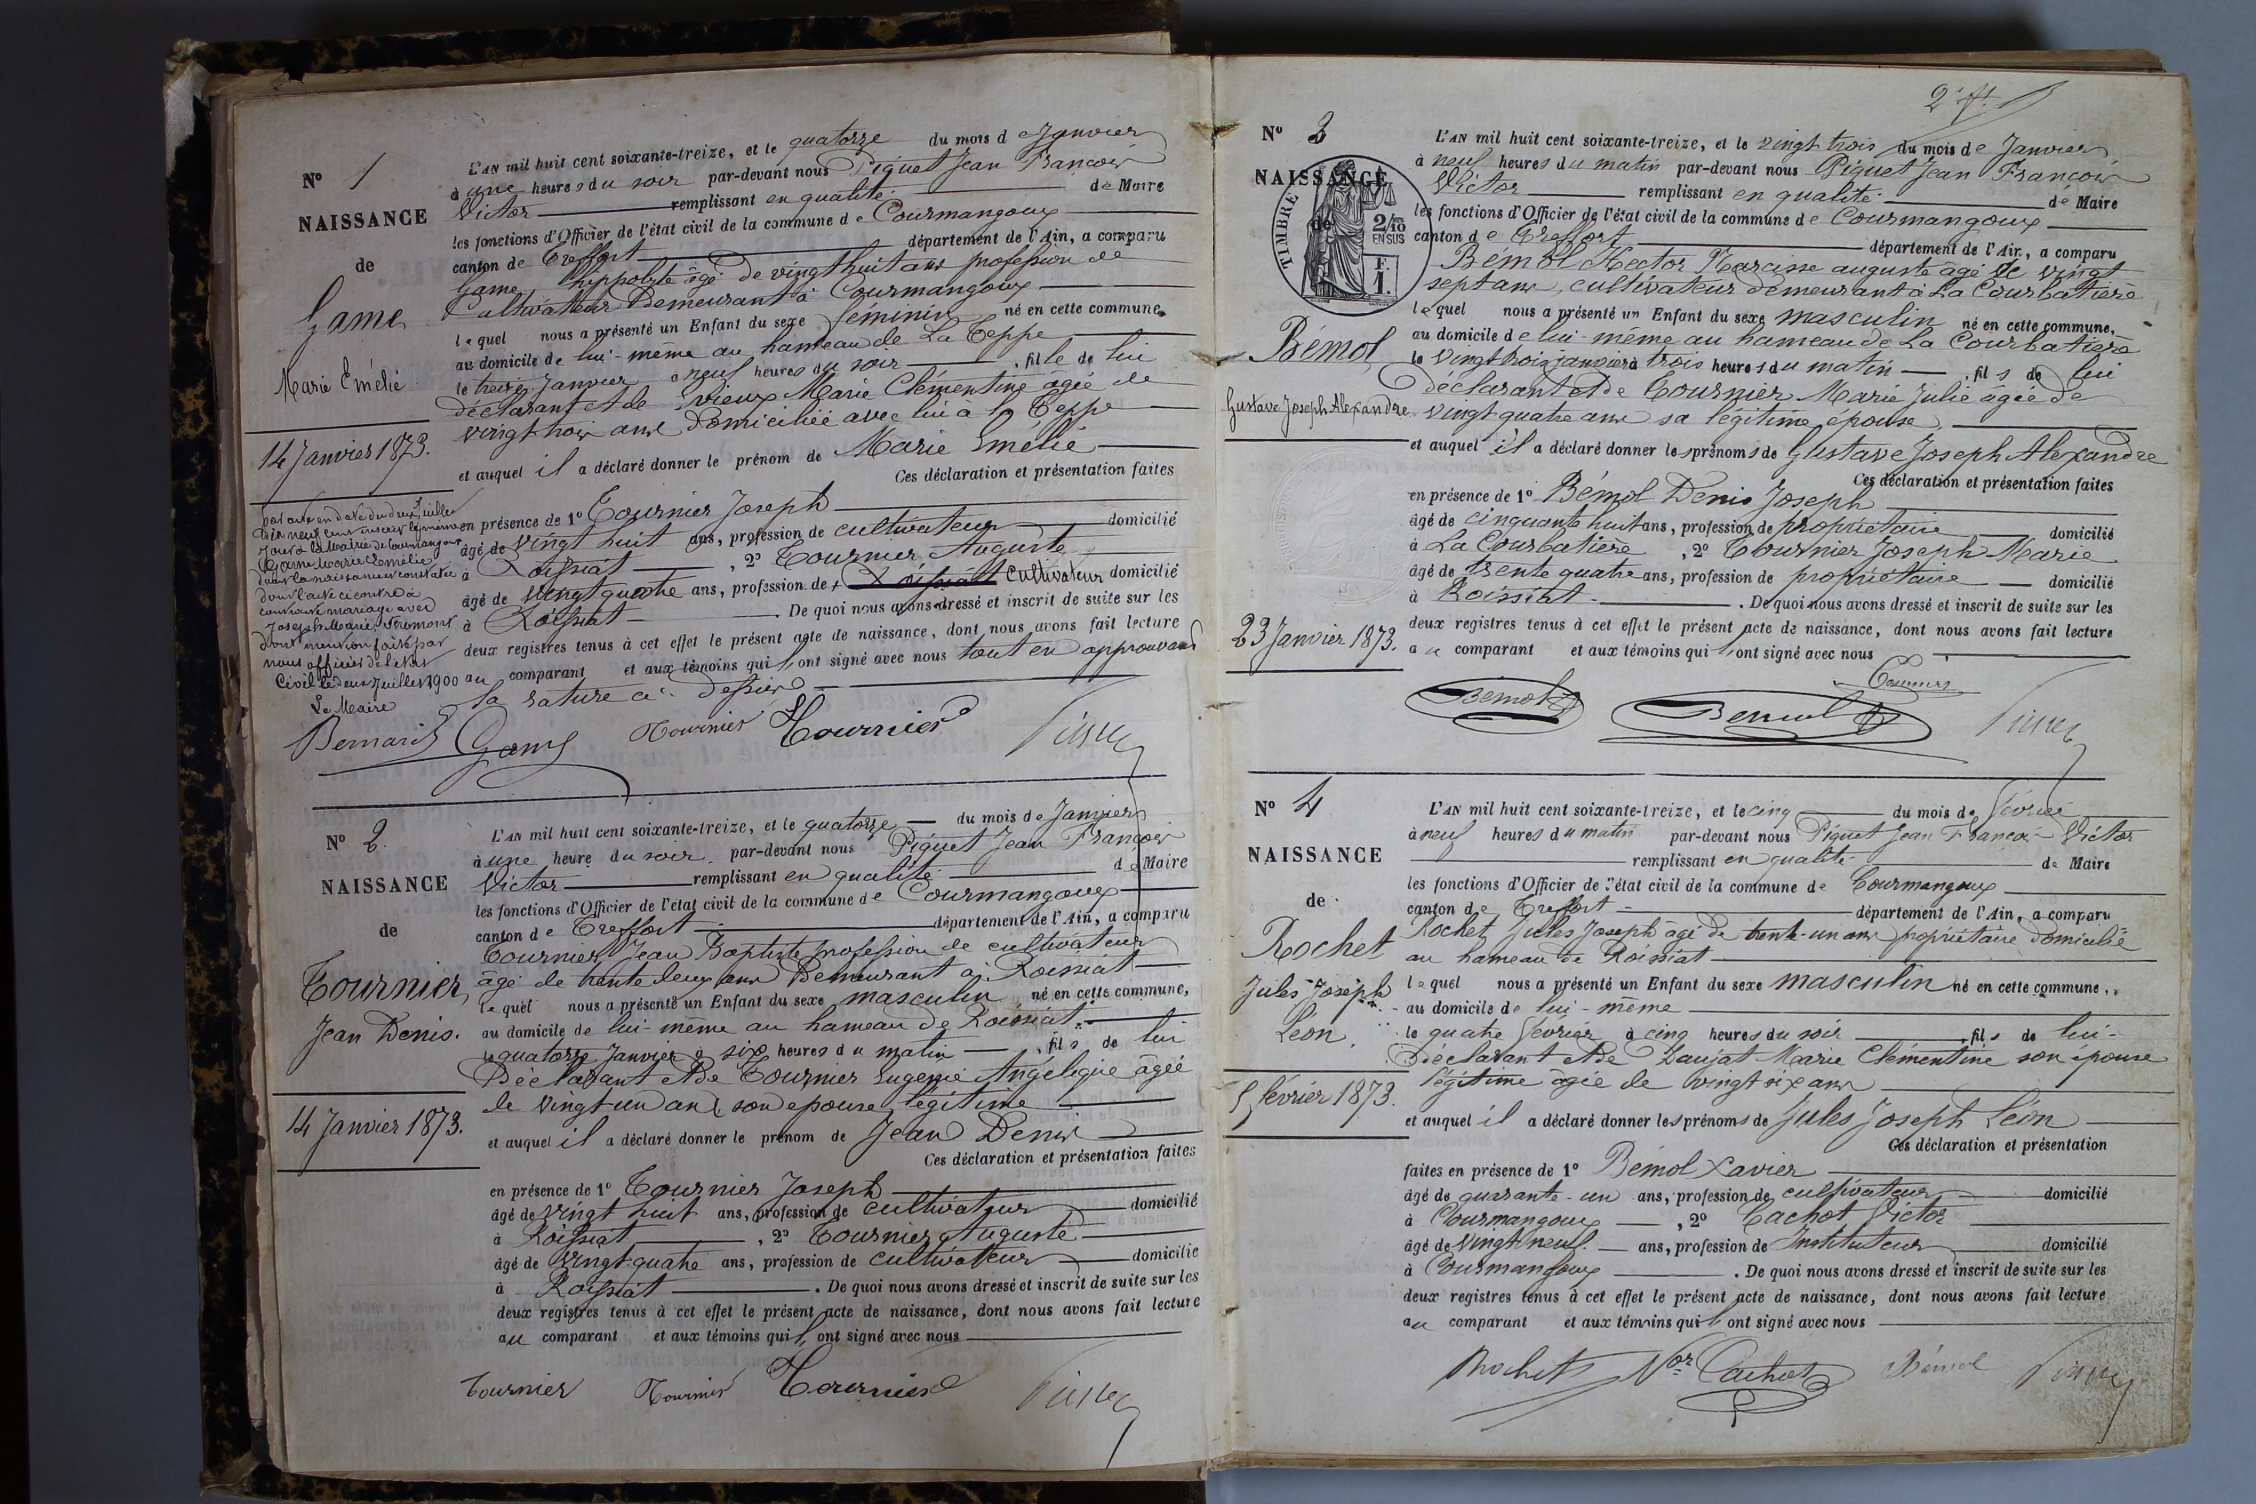 N° 1
NAISSANCE
de
Game
Marie Emélie
14 Janvier 1873.
par acte en date du deux Juillet
mil neuf cent
jour à la Mairie de Courmangoux
Game Marie Emélie
dont la naissance constatée
dont l'acte ci contre a
contracté mariage avec
Joseph Marie Fromont
dont mention faite par
nous officier de l'état
Civil le deux Juillet 1900
Le Maire
Bernard
L'AN mil huit cent soixante-treize, et le quatorze du mois de Janvier
à une heures du soir par-devant nous Piquet Jean François
Victor remplissant en qualité de Maire
les fonctions d'Officier de l'état civil de la commune de Courmangoux
canton de Treffort département de l'Ain, a comparu
Game hippolyte âgé de vingt huit ans profession de
Cultivateur Demeurant à Courmangoux
lequel nous a présenté un Enfant du sexe féminin né en cette commune,
au domicile de lui-même au hameau de La Teppe
le treize Janvier à neuf heures du soir, fille de lui
déclarant et de Vieux Marie Clémentine âgée de
vingt trois ans domiciliée avec lui à la Teppe
et auquel il a déclaré donner le prénom de Marie Emélie
Ces déclaration et présentation faites
en présence de 1° Tournier Joseph
âgé de vingt huit ans, profession de cultivateur domicilié
à Roissiat, 2° Tournier Auguste
âgé de vingt quatre ans, profession de + Roissiat Cultivateur domicilié
à Roissiat. De quoi nous avons dressé et inscrit de suite sur les
deux registres tenus à cet effet le présent acte de naissance, dont nous avons fait lecture
au comparant et aux témoins qui l'ont signé avec nous tout en approuvant
la rature ci-dessus
Game Tournier Tournier Piquet
N° 2
NAISSANCE
de
Tournier
Jean Denis.
14 Janvier 1873.
L'AN mil huit cent soixante-treize, et le quatorze du mois de Janvier
à une heure du soir par-devant nous Piquet Jean François
Victor remplissant en qualité de Maire
les fonctions d'Officier de l'état civil de la commune de Courmangoux
canton de Treffort département de l'Ain, a comparu
Tournier Jean Baptiste profession de cultivateur
âgé de trente deux ans Demeurant à Roissiat
lequel nous a présenté un Enfant du sexe masculin né en cette commune,
au domicile de lui-même au hameau de Roissiat
le quatorze Janvier à six heures du matin, fils de lui
Déclarant et de Tournier Eugenie Angélique âgée
de vingt un ans, son épouse légitime
et auquel il a déclaré donner le prénom de Jean Denis
Ces déclaration et présentation faites
en présence de 1° Tournier Joseph
âgé de vingt huit ans, profession de cultivateur domicilié
à Roissiat, 2° Tournier Auguste
âgé de vingt-quatre ans, profession de cultivateur domicilié
à Roissiat. De quoi nous avons dressé et inscrit de suite sur les
deux registres tenus à cet effet le présent acte de naissance, dont nous avons fait lecture
au comparant et aux témoins qui l'ont signé avec nous
Tournier Tournier Tournier Piquet
2e ft.
N° 3
NAISSANCE
de
TIMBRE
2/10
EN SUS
F.
1.
Bémol
Gustave Joseph Alexandre
23 Janvier 1873.
L'AN mil huit cent soixante-treize, et le vingt trois du mois de Janvier
à neuf heures du matin par-devant nous Piquet Jean François
Victor remplissant en qualité de Maire
les fonctions d'Officier de l'état civil de la commune de Courmangoux
canton de Treffort département de l'Ain, a comparu
Bémol Hector Narcisse auguste âgé de vingt
sept ans, cultivateur demeurant à La Courbatière
lequel nous a présenté un Enfant du sexe masculin né en cette commune,
au domicile de lui-même au hameau de La Courbatière
le vingt trois janvier à trois heures du matin, fils de lui
déclarant et de Tournier Marie Julie âgée de
vingt quatre ans sa légitime épouse
et auquel il a déclaré donner les prénoms de Gustave Joseph Alexandre
Ces déclaration et présentation faites
en présence de 1° Bémol Denis Joseph
âgé de cinquante huit ans, profession de propriétaire domicilié
à La Courbatière, 2° Tournier Joseph Marie
âgé de trente quatre ans, profession de propriétaire domicilié
à Roissiat. De quoi nous avons dressé et inscrit de suite sur les
deux registres tenus à cet effet le présent acte de naissance, dont nous avons fait lecture
au comparant et aux témoins qui l'ont signé avec nous
Tournier
Bémol Bemol Piquet
N° 4
NAISSANCE
de
Rochet
Jules Joseph
Léon.
5 février 1873.
L'AN mil huit cent soixante-treize, et le cinq du mois de Février
à neuf heures du matin par-devant nous Piquet Jean François Victor
remplissant en qualité de Maire
les fonctions d'Officier de l'état civil de la commune de Courmangoux
canton de Treffort département de l'Ain, a comparu
Rochet Jules Joseph âgé de trente-un ans propriétaire domicilié
au hameau de Roissiat
lequel nous a présenté un Enfant du sexe masculin né en cette commune,
au domicile de lui-même
le quatre Février à cinq heures du soir, fils de lui-
Déclarant et de Laujat Marie Clémentine son épouse
légitime âgée de vingt six ans
et auquel il a déclaré donner les prénoms de Jules Joseph Léon
Ces déclaration et présentation
faites en présence de 1° Bémol Xavier
âgé de quarante-un ans, profession de cultivateur domicilié
à Courmangoux, 2° Cachot Victor
âgé de vingt neuf ans, profession de Instituteur domicilié
à Courmangoux. De quoi nous avons dressé et inscrit de suite sur les
deux registres tenus à cet effet le présent acte de naissance, dont nous avons fait lecture
au comparant et aux témoins qui l'ont signé avec nous
Rochet Vor Cachot Bémol Piquet